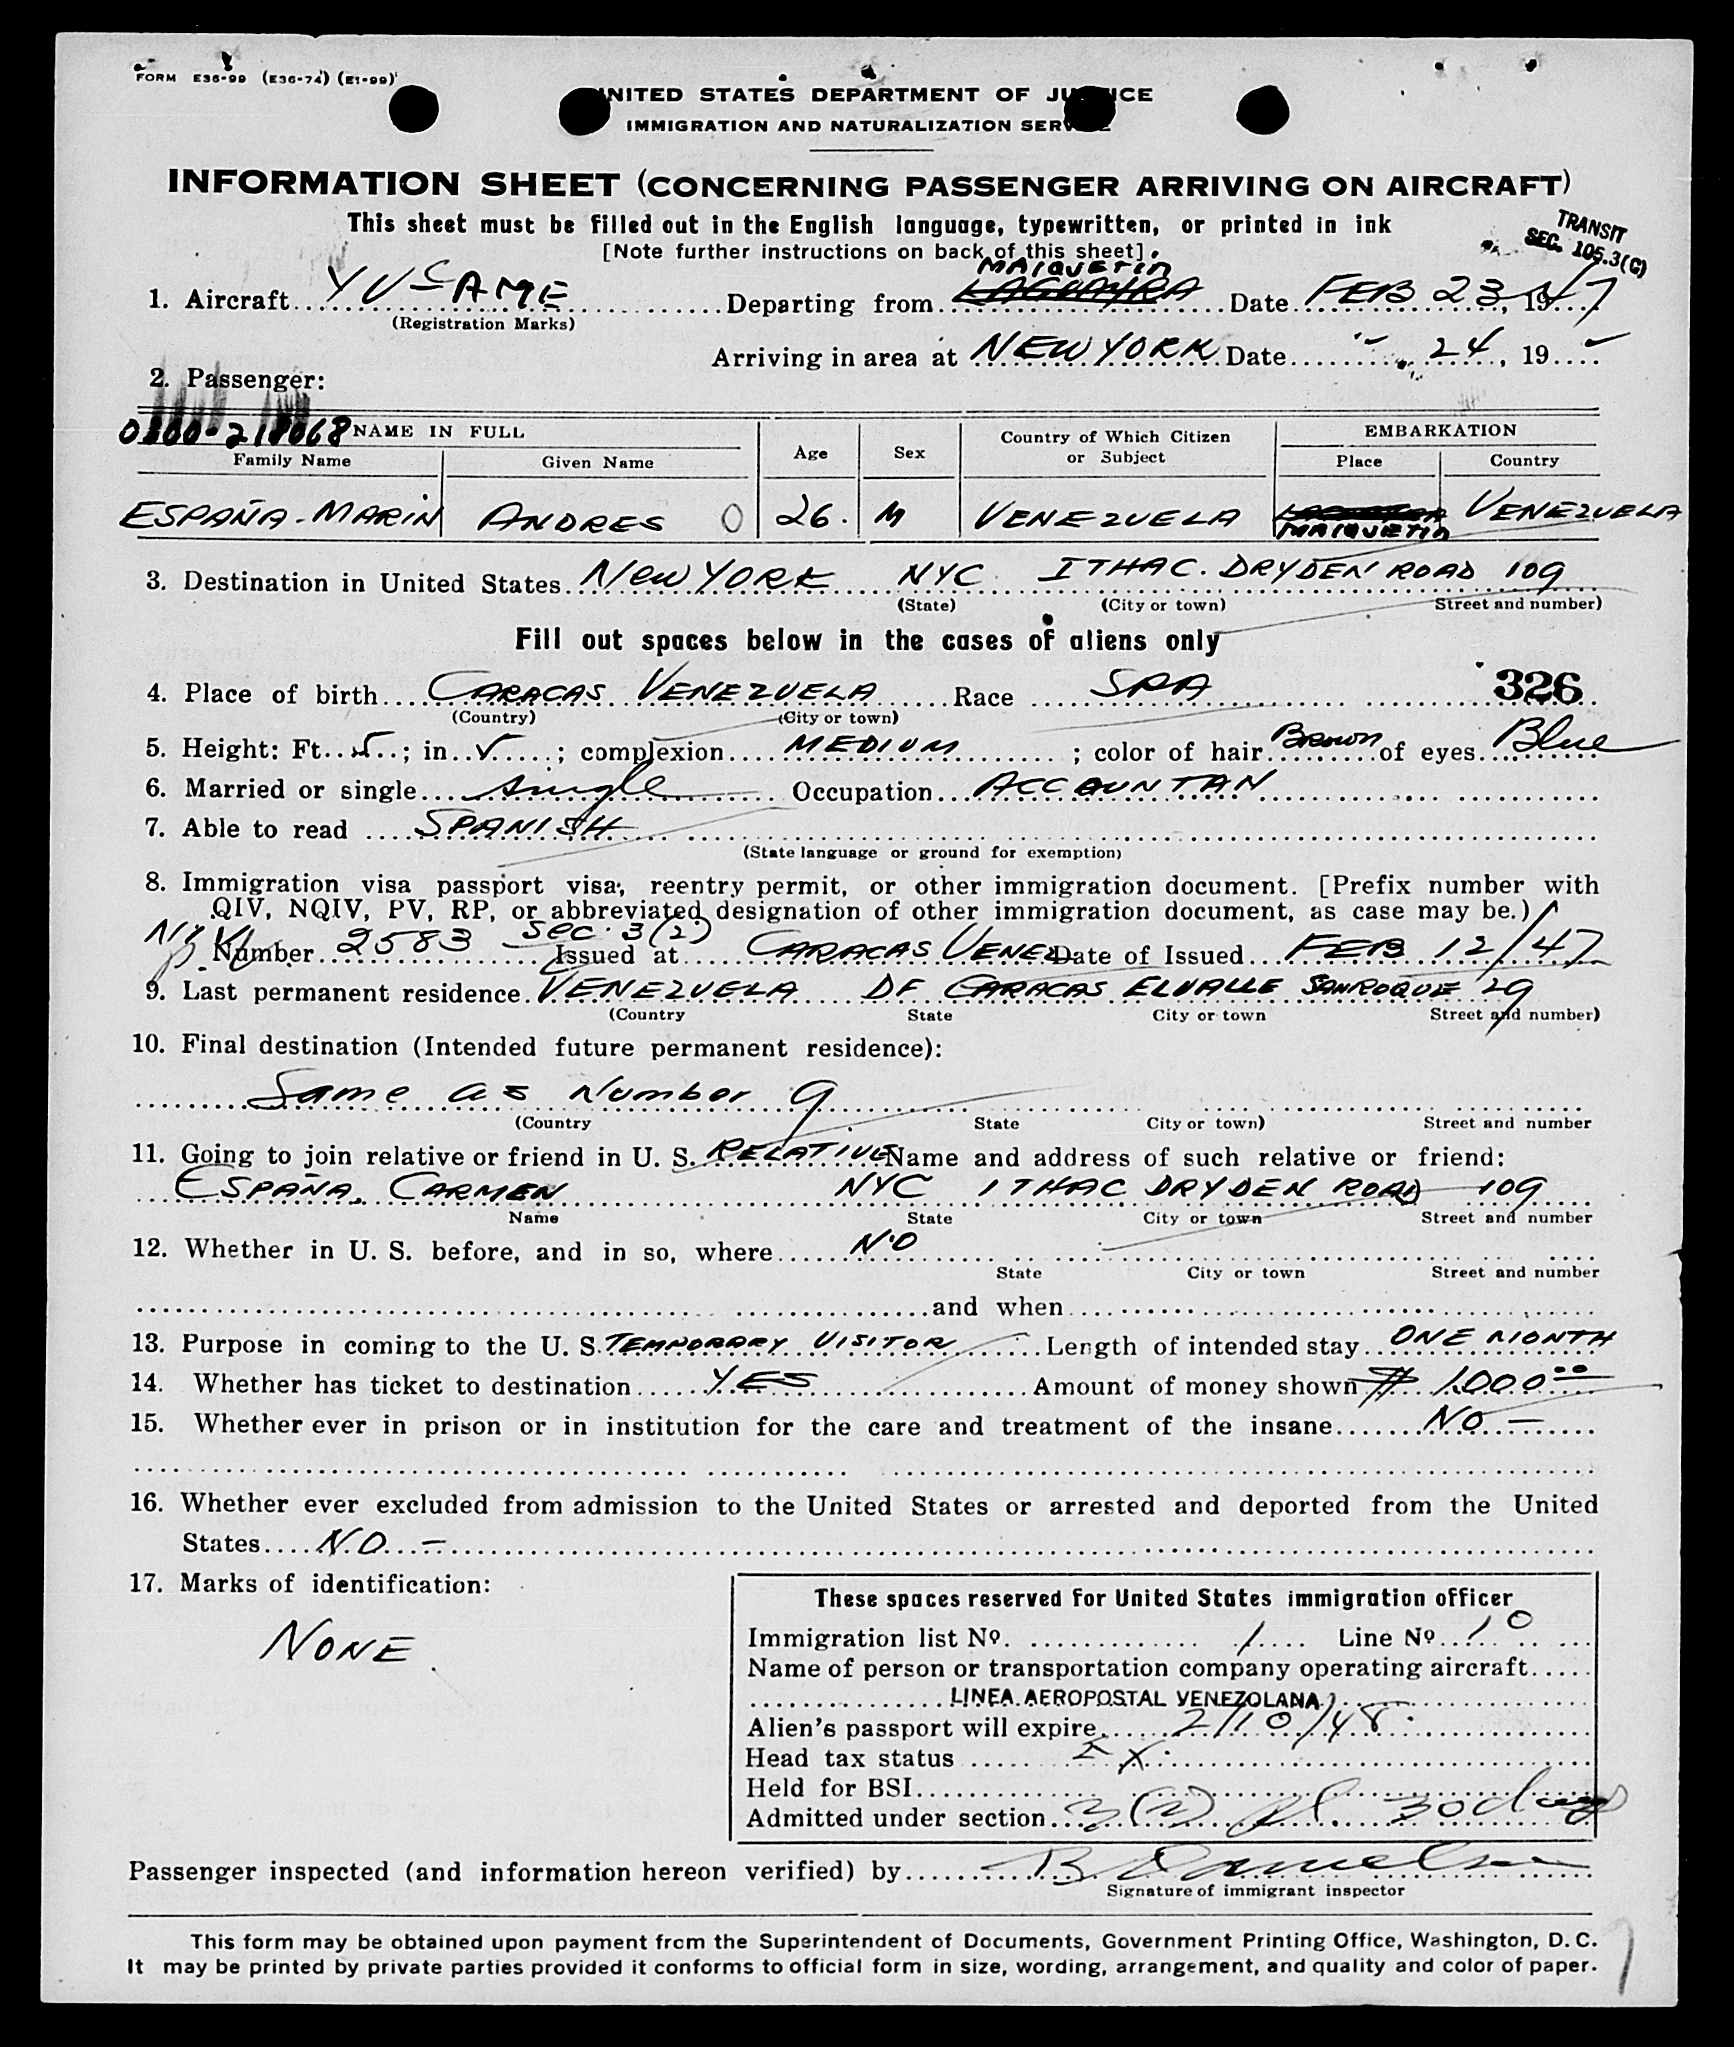 FORM E36-99 (E36-74) (E1-99)
UNITED STATES DEPARTMENT OF JUSTICE
IMMIGRATION AND NATURALIZATION SERVICE
INFORMATION SHEET (CONCERNING PASSENGER ARRIVING ON AIRCRAFT)
This sheet must be filled out in the English language, typewritten, or printed in ink
[Note further instructions on back of this sheet]
TRANSIT
SEC. 105.3(C)
MAIQUETIA
1. Aircraft YV-C-AME Departing from LAGUAYRA Date FEB 23, 1947
(Registration Marks)
Arriving in area at NEW YORK Date " 24, 19
2. Passenger:
0300-218068 NAME IN FULL Age Sex Country of Which Citizen or Subject EMBARKATION
Family Name Given Name Place Country
ESPAÑA-MARIN ANDRES O 26. M VENEZUELA MAIQUETIA VENEZUELA
3. Destination in United States NEW YORK NYC ITHAC. DRYDEN ROAD 109
(State) (City or town) Street and number)
Fill out spaces below in the cases of aliens only
4. Place of birth CARACAS VENEZUELA Race SPA 326
(Country) (City or town)
5. Height: Ft. 5; in. 5; complexion MEDIUM; color of hair Brown of eyes Blue
6. Married or single Single Occupation ACCOUNTAN
7. Able to read SPANISH
(State language or ground for exemption)
8. Immigration visa passport visa, reentry permit, or other immigration document. [Prefix number with
QIV, NQIV, PV, RP, or abbreviated designation of other immigration document, as case may be.)
Sec. 3(2)
Number 2583 Issued at CARACAS VENEZ Date of Issued FEB 12/47
9. Last permanent residence VENEZUELA DF CARACAS ELVALLE SANROQUE 29
(Country State City or town Street and number)
10. Final destination (Intended future permanent residence):
Same as Number 9
(Country State City or town) Street and number
11. Going to join relative or friend in U. S. RELATIVE Name and address of such relative or friend:
ESPAÑA, CARMEN NYC ITHAC DRYDEN ROAD 109
Name State City or town Street and number
12. Whether in U. S. before, and in so, where NO
State City or town Street and number
and when
13. Purpose in coming to the U. S. TEMPORARY VISITOR Length of intended stay ONE MONTH
14. Whether has ticket to destination YES Amount of money shown $ 1.000 00
15. Whether ever in prison or in institution for the care and treatment of the insane NO —
16. Whether ever excluded from admission to the United States or arrested and deported from the United
States NO —
17. Marks of identification:
NONE
These spaces reserved for United States immigration officer
Immigration list No. 1 Line No. 10
Name of person or transportation company operating aircraft
LINEA AEROPOSTAL VENEZOLANA
Alien's passport will expire 2/10/48
Head tax status EX.
Held for BSI
Admitted under section 3(2) 30 days
Passenger inspected (and information hereon verified) by
Signature of immigrant inspector
This form may be obtained upon payment from the Superintendent of Documents, Government Printing Office, Washington, D. C.
It may be printed by private parties provided it conforms to official form in size, wording, arrangement, and quality and color of paper.